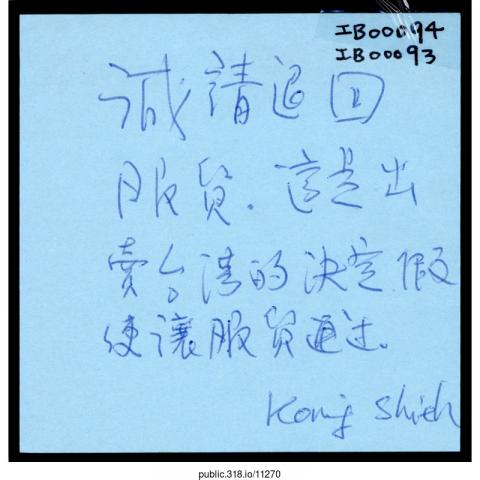 IB00094
IB00093
誠請退回
服貿.這是出
賣台湾的決定假
使讓服貿通过.
Kong Shieh
public.318.io/11270